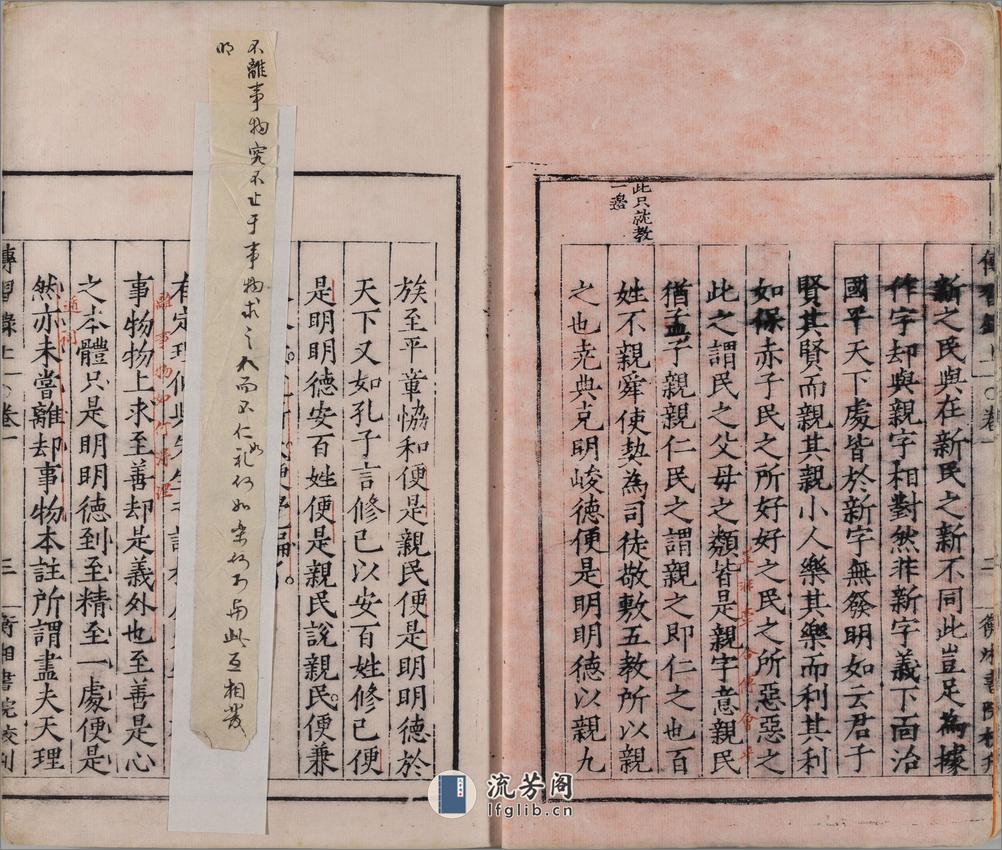 此只就教
一邊
新之民與在新民之新不同此豈足為據
作字却與親字相對然非新字義下面治
國平天下處皆於新字無發明如云君子
賢其賢而親其親小人樂其樂而利其利
如保赤子民之所好好之民之所惡惡之
此之謂民之父母之類皆是親字意親民
猶孟子親親仁民之謂親之即仁之也百
姓不親舜使契為司徒敬敷五教所以親
之也堯典克明峻德便是明明德以親九
族至平章恊和便是親民便是明明德於
天下又如孔子言修己以安百姓修己便
是明明德安百姓便是親民說親民便兼
不離事物究不止于事物求之人而不仁如礼何如樂何可與此互相發
明
有定理
事物物上求至善却是義外也至善是心
之本體只是明明德到至精至一處便是
然亦未嘗離却事物本註所謂盡夫天理
傳習錄上 卷一 三 衡湘書院校刊
流芳阁
lfglib.cn